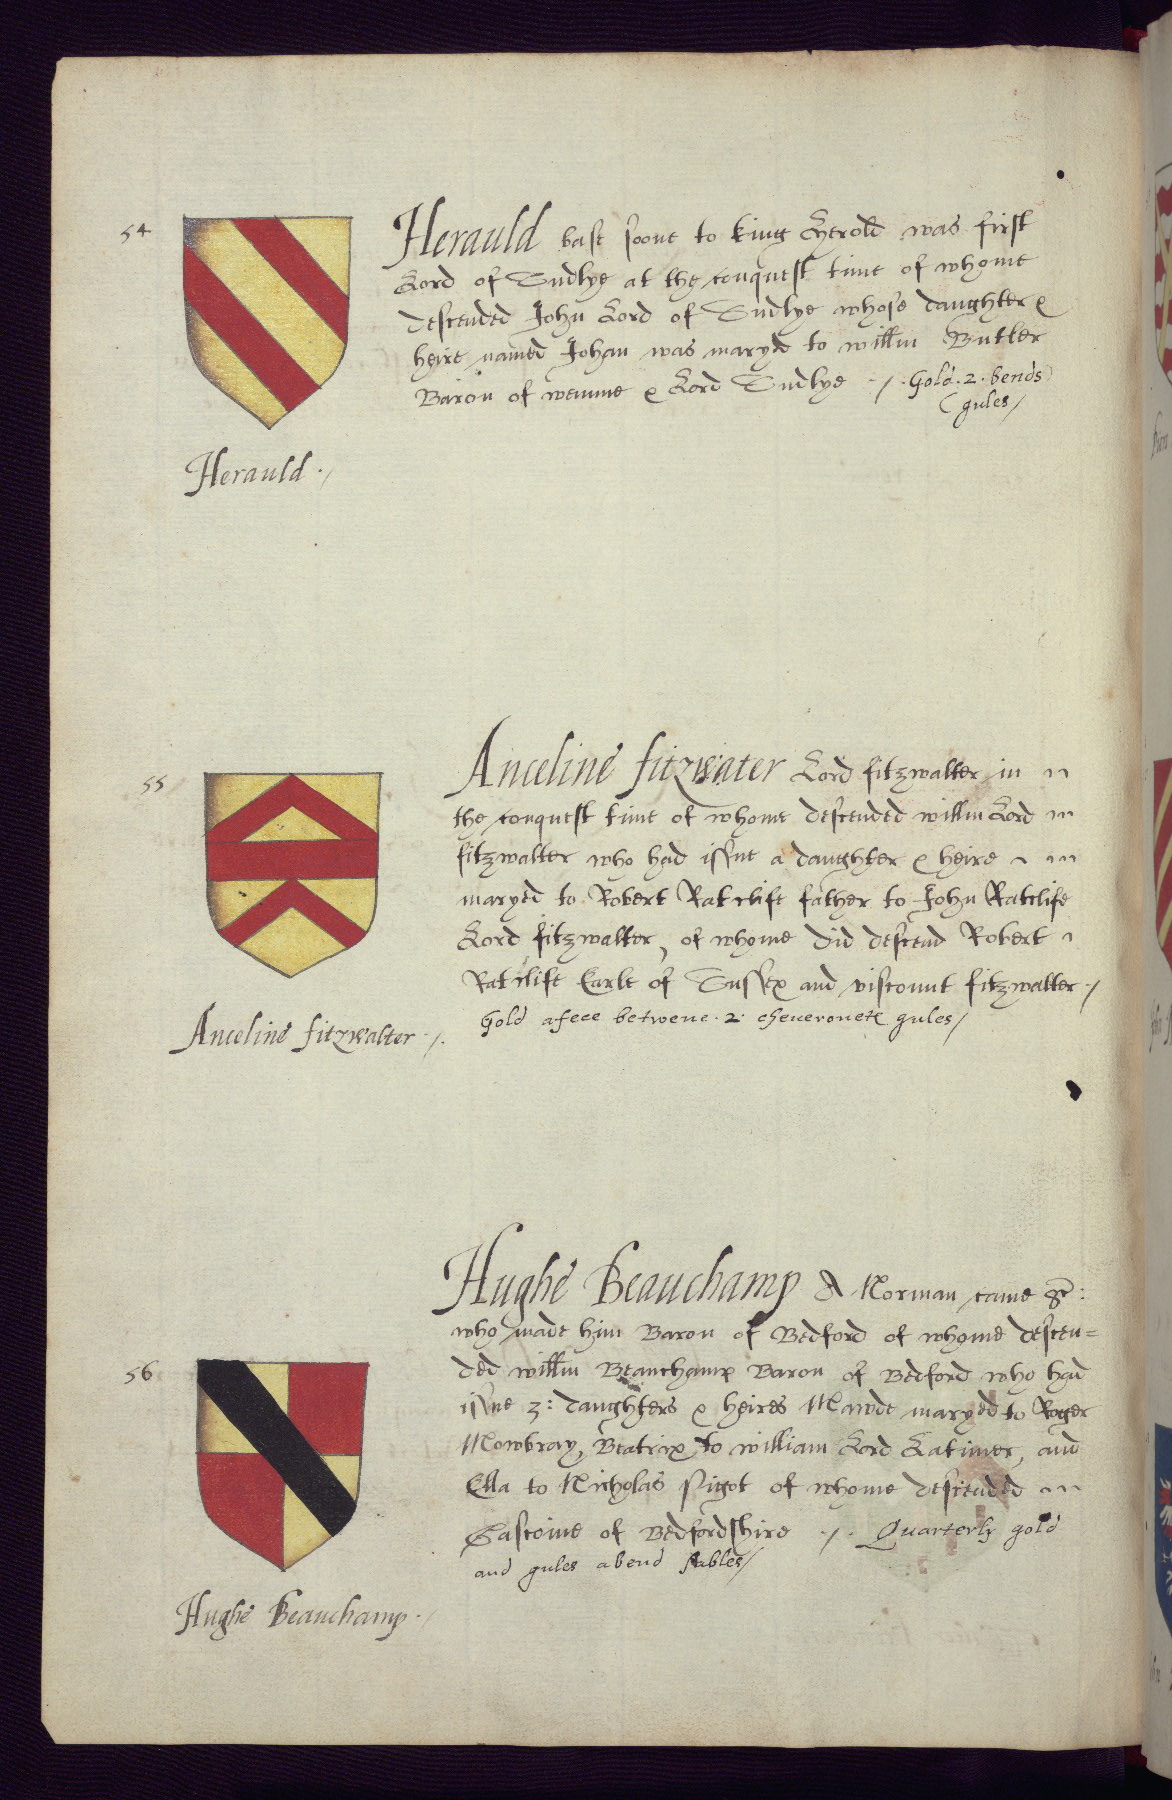 54
Herauld base soone to king Herold was first
Lord of Sudlye at the conquest time of whome
descended John Lord of Sudlye whose daughter &
heire named Johan was maryed to willm Butler
Baron of wemme & Lord Sudlye ·/· Gold · 2 · bends
(gules/
Herauld ·/
55
Anceline fitzwater Lord fitzwalter in
the conquest time of whome descended willm Lord
fitzwalter who had issue a daughter & heire
maryed to Robert Ratclife father to John Ratclife
Lord fitzwalter, of whome did descend Robert
Ratclife Earle of Sussex and viscount fitzwalter ·/
Gold a fece betwene · 2 · cheueronett gules/
Anceline fitzwalter ·/·
56
Hughe Beauchamp A Norman came &c:
who made him Baron of Bedford of whome descen=
ded willm Beauchamp Baron of Bedford who had
issue 3: daughters & heires Mawde maryed to Roger
Mowbray, Beatrix to william Lord Latimer, and
Ella to Nicholas Pigot of whome descended
Gascoine of Bedfordshire ·/· Quarterly gold
and gules a bend sables/
Hughe Beauchamp ·/